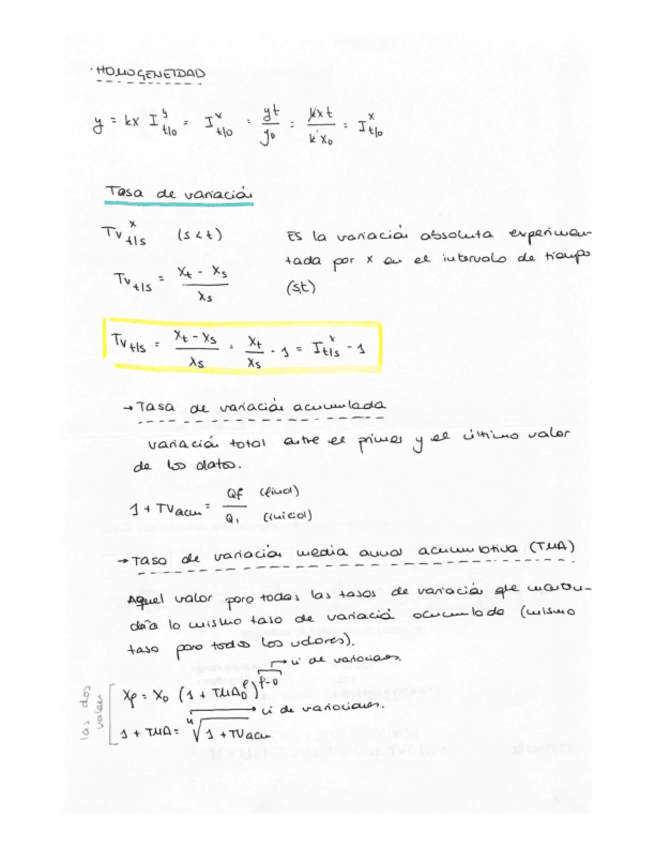 · HOMOGENEIDAD
y = kx I^y_t/0 = I^x_t/0 = yt/y0 = kxt/kx0 = I^x_t/0
Tasa de variación
Tv^x_t/s (s<t)
Es la variación absoluta experimen-
tada por x en el intervalo de tiempo
(s,t)
Tv_t/s = (Xt - Xs)/Xs
Tv_t/s = (Xt - Xs)/Xs = Xt/Xs - 1 = I^x_t/s - 1
→ Tasa de variación acumulada
variación total entre el primer y el último valor
de los datos.
1 + TVacum = Qf (final) / Q1 (inicial)
→ Tasa de variación media anual acumulativa (TMA)
Aquel valor para todas las tasas de variación que
daría la misma tasa de variació acumulada (misma
tasa para todos los valores).
→ nº de variaciones.
las dos
valen
Xp = X0 (1 + TMA^p_0)^p-0
→ nº de variaciones.
1 + TMA = ⁿ√1 + TVacu